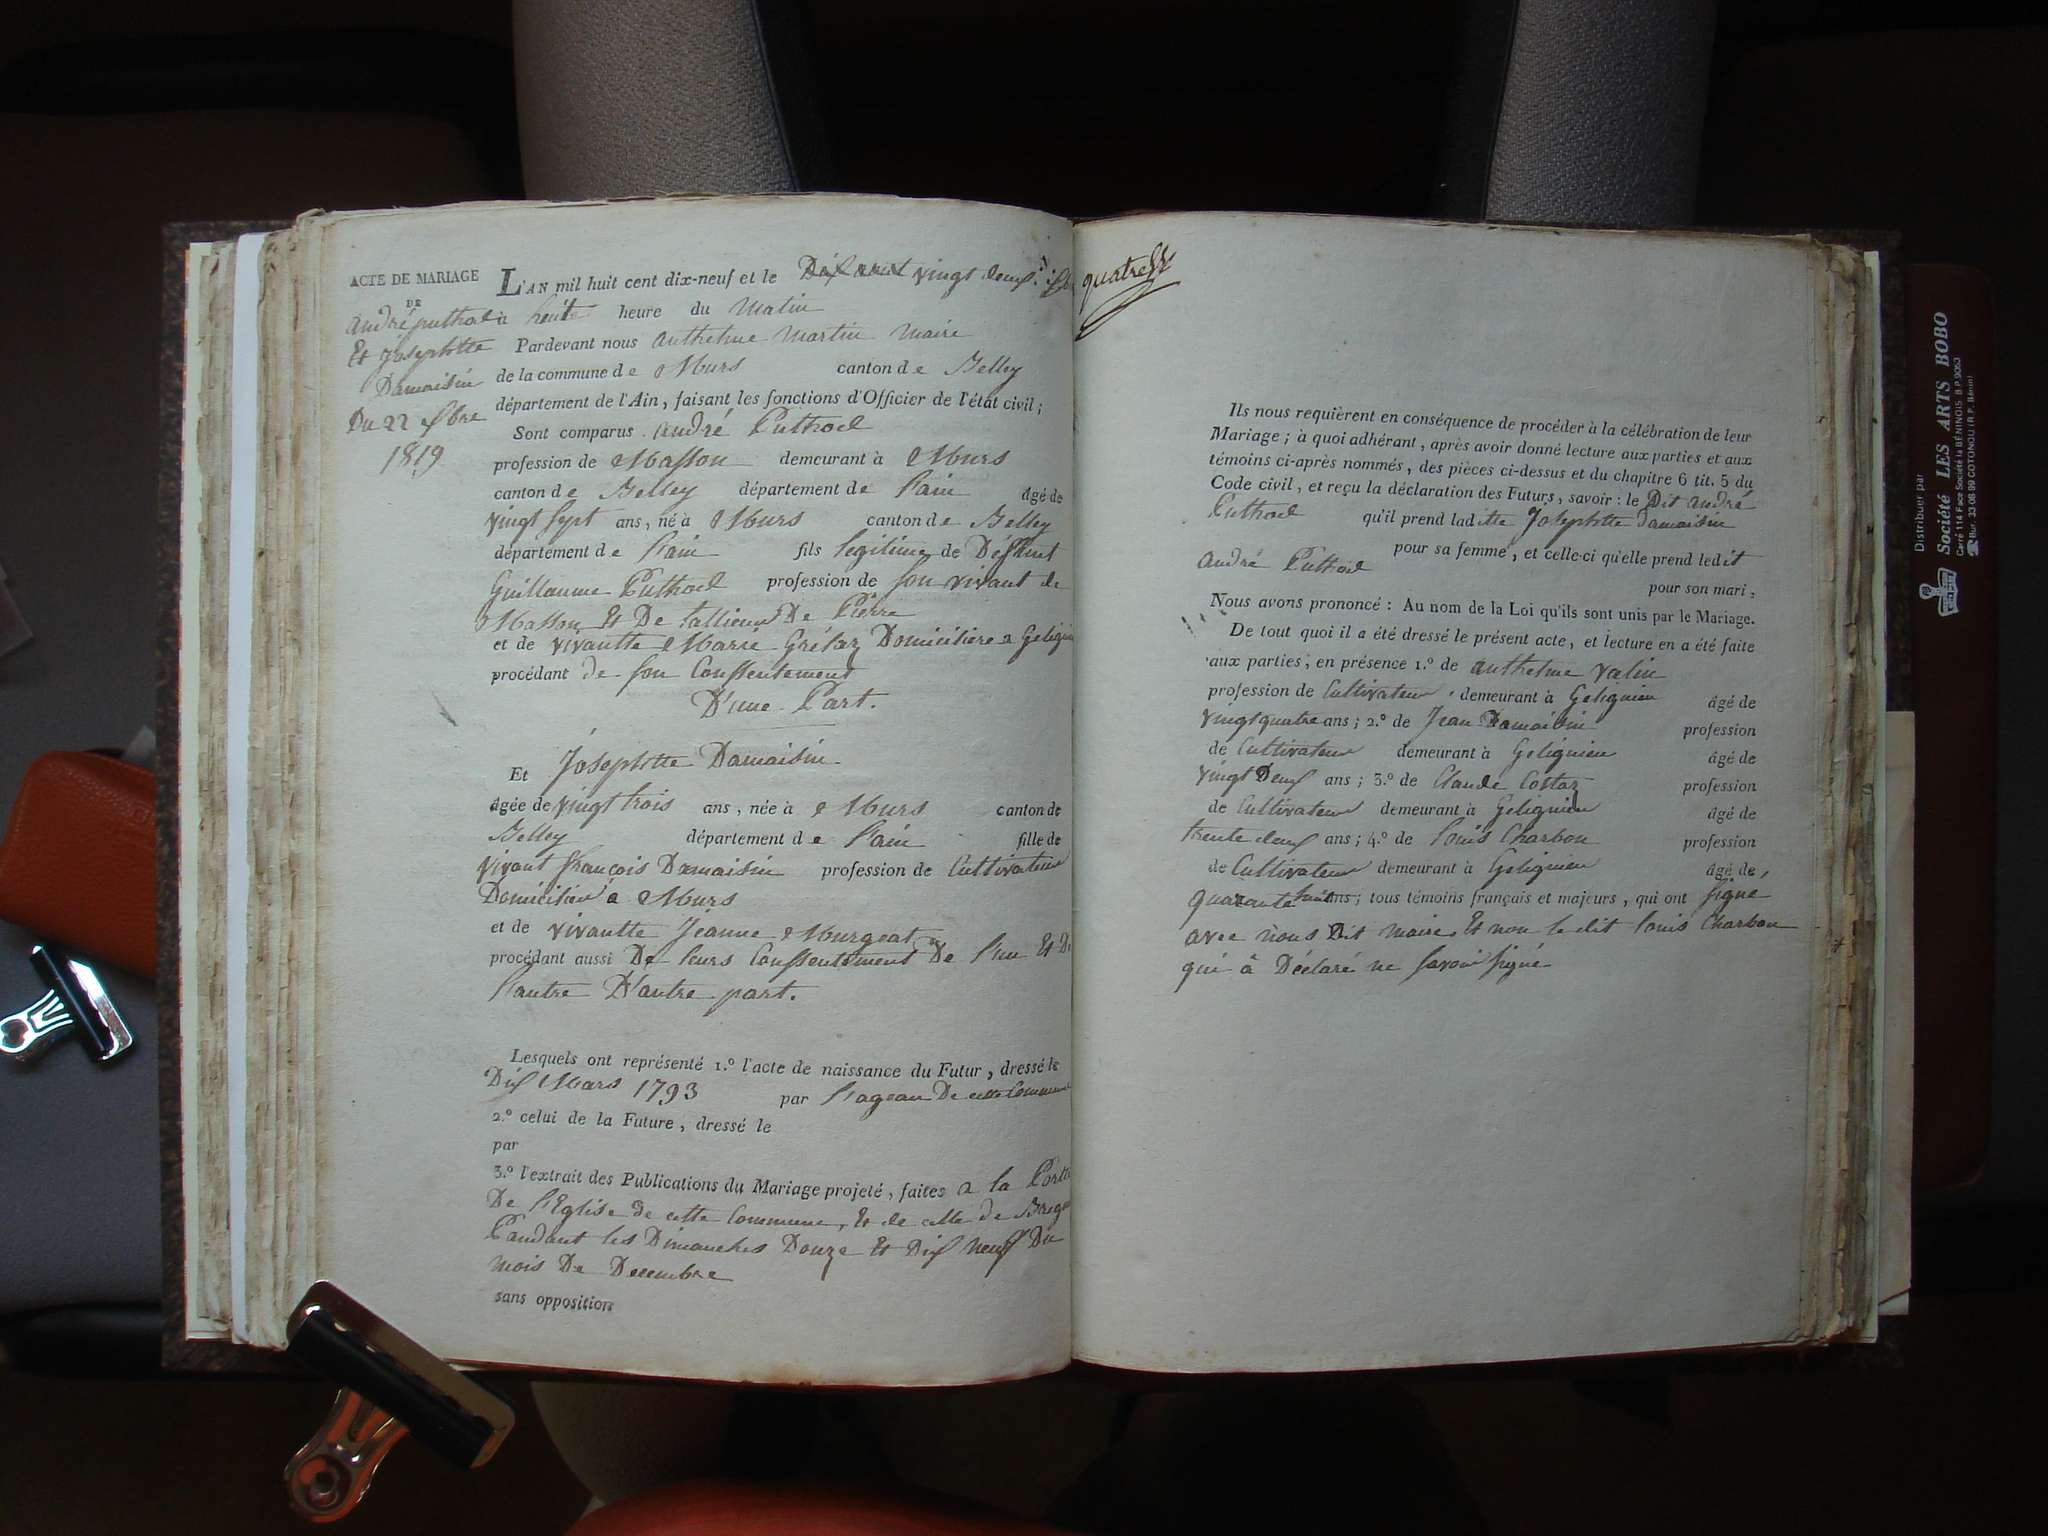 ACTE DE MARIAGE
DE
André puthod
Et Josephtte
Damaisin
Du 22 xbre
1819
L'AN mil huit cent dix-neuf et le Dix vingt deux
à heure du Matin
Pardevant nous anthelme Martin Maire
de la commune de Murs canton de Belley
département de l'Ain, faisant les fonctions d'Officier de l'état civil;
Sont comparus André Puthod
profession de Masson demeurant à Murs
canton de Belley département de l'ain âgé de
vingt sept ans, né à Murs canton de Belley
département de l'ain fils legitime de Deffunt
Guillaume Puthod profession de son vivant de
Masson Et De tallieur De Pierre
et de vivantte Marie Grélaz Domiciliere a
procédant de son Conssentement
D'une Part.
Et Josephtte Damaisin
âgée de vingt trois ans, née à Murs canton de
Belley département de l'ain fille de
vivant françois Damaisin profession de Cultivateur
Domicilier à Murs
et de vivantte Jeanne Murgeat
procédant aussi De leurs Conssentement De l'un Et De
l'autre D'autre part.
Lesquels ont représenté 1.º l'acte de naissance du Futur, dressé le
Dix Mars 1793 par Pageau De cette Commune
2.º celui de la Future, dressé le
par
3.º l'extrait des Publications du Mariage projeté, faites a la Porte
De l'Eglise de cette Commune, Et de celle de
Pandant les Dimanches Douze Et Dix neuf Du
mois De Decembre
sans opposition
quatre
Ils nous requièrent en conséquence de procéder à la célébration de leur
Mariage; à quoi adhérant, après avoir donné lecture aux parties et aux
témoins ci-après nommés, des pièces ci-dessus et du chapitre 6 tit. 5 du
Code civil, et reçu la déclaration des Futurs, savoir: le Dit andré
Puthod qu'il prend ladite Josephtte Damaisin
pour sa femme, et celle-ci qu'elle prend ledit
André Puthod
pour son mari,
Nous avons prononcé: Au nom de la Loi qu'ils sont unis par le Mariage.
De tout quoi il a été dressé le présent acte, et lecture en a été faite
aux parties, en présence 1.º de anthelme valin
profession de Cultivateur demeurant à Gelignieu âgé de
vingt quatre ans; 2.º de Jean Damaisin profession
de Cultivateur demeurant à Gelignieu âgé de
vingt Deux ans; 3.º de Claude Costaz profession
de Cultivateur demeurant à Gelignieu âgé de
trente deux ans; 4.º de louis Charbon profession
de Cultivateur demeurant à Gelignieu âgé de
quarante huit ans; tous témoins français et majeurs, qui ont signé
avec nous Dit maire Et non le dit louis Charbon
qui à Déclaré ne savoir signé
Distribuer par
Société LES ARTS BOBO
Carré 114 Face Société la BÉNINOIS B.P. 9053
Bur. 33-06-99 COTONOU (R.P. Bénin)